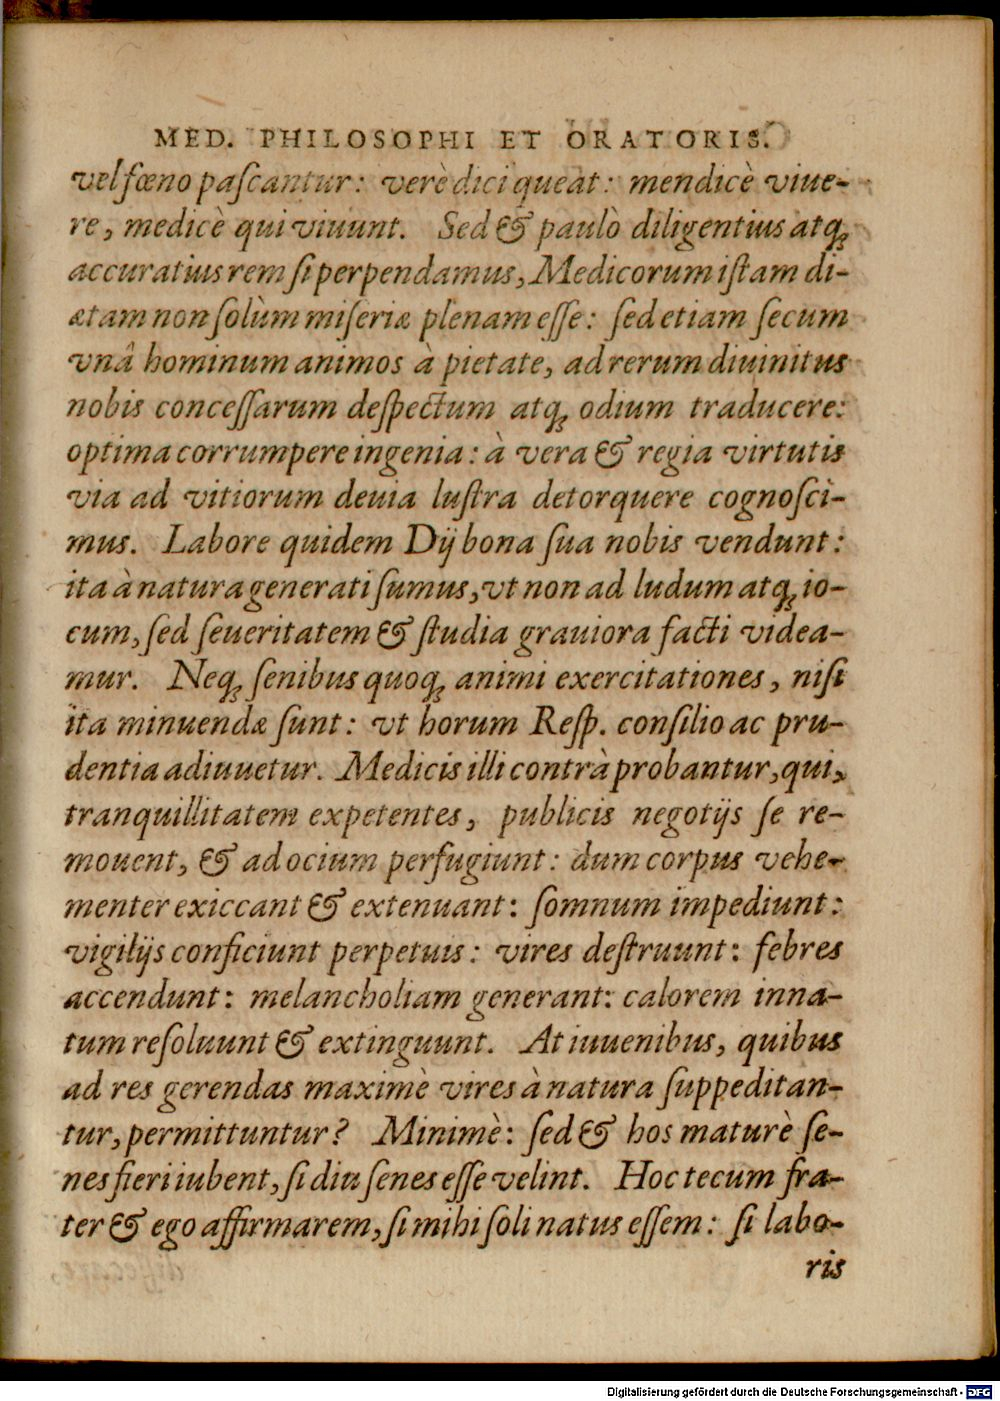 MED. PHILOSOPHI ET ORATORIS.
vel fœno paſcantur: verè dici queat: mendicè viue-
re, medicè qui viuunt. Sed & paulò diligentius atq;
accuratius rem ſi perpendamus, Medicorum iſtam di-
ætam non ſolùm miſeriæ plenam eſſe: ſed etiam ſecum
vnâ hominum animos à pietate, ad rerum diuinitus
nobis conceſſarum deſpectum atq; odium traducere:
optima corrumpere ingenia: à vera & regia virtutis
via ad vitiorum deuia luſtra detorquere cognoſci-
mus. Labore quidem Dij bona ſua nobis vendunt:
ita à natura generati ſumus, vt non ad ludum atq; io-
cum, ſed ſeueritatem & ſtudia grauiora facti videa-
mur. Neq; ſenibus quoq; animi exercitationes, niſi
ita minuendæ ſunt: vt horum Reſp. conſilio ac pru-
dentia adiuuetur. Medicis illi contrà probantur, qui,
tranquillitatem expetentes, publicis negotijs ſe re-
mouent, & ad ocium perfugiunt: dum corpus vehe-
menter exiccant & extenuant: ſomnum impediunt:
vigilijs conficiunt perpetuis: vires deſtruunt: febres
accendunt: melancholiam generant: calorem inna-
tum reſoluunt & extinguunt. At iuuenibus, quibus
ad res gerendas maximè vires à natura ſuppeditan-
tur, permittuntur? Minimè: ſed & hos maturè ſe-
nes fieri iubent, ſi diu ſenes eſſe velint. Hoc tecum fra-
ter & ego affirmarem, ſi mihi ſoli natus eſſem: ſi labo-
ris
Digitalisierung gefördert durch die Deutsche Forschungsgemeinschaft - DFG